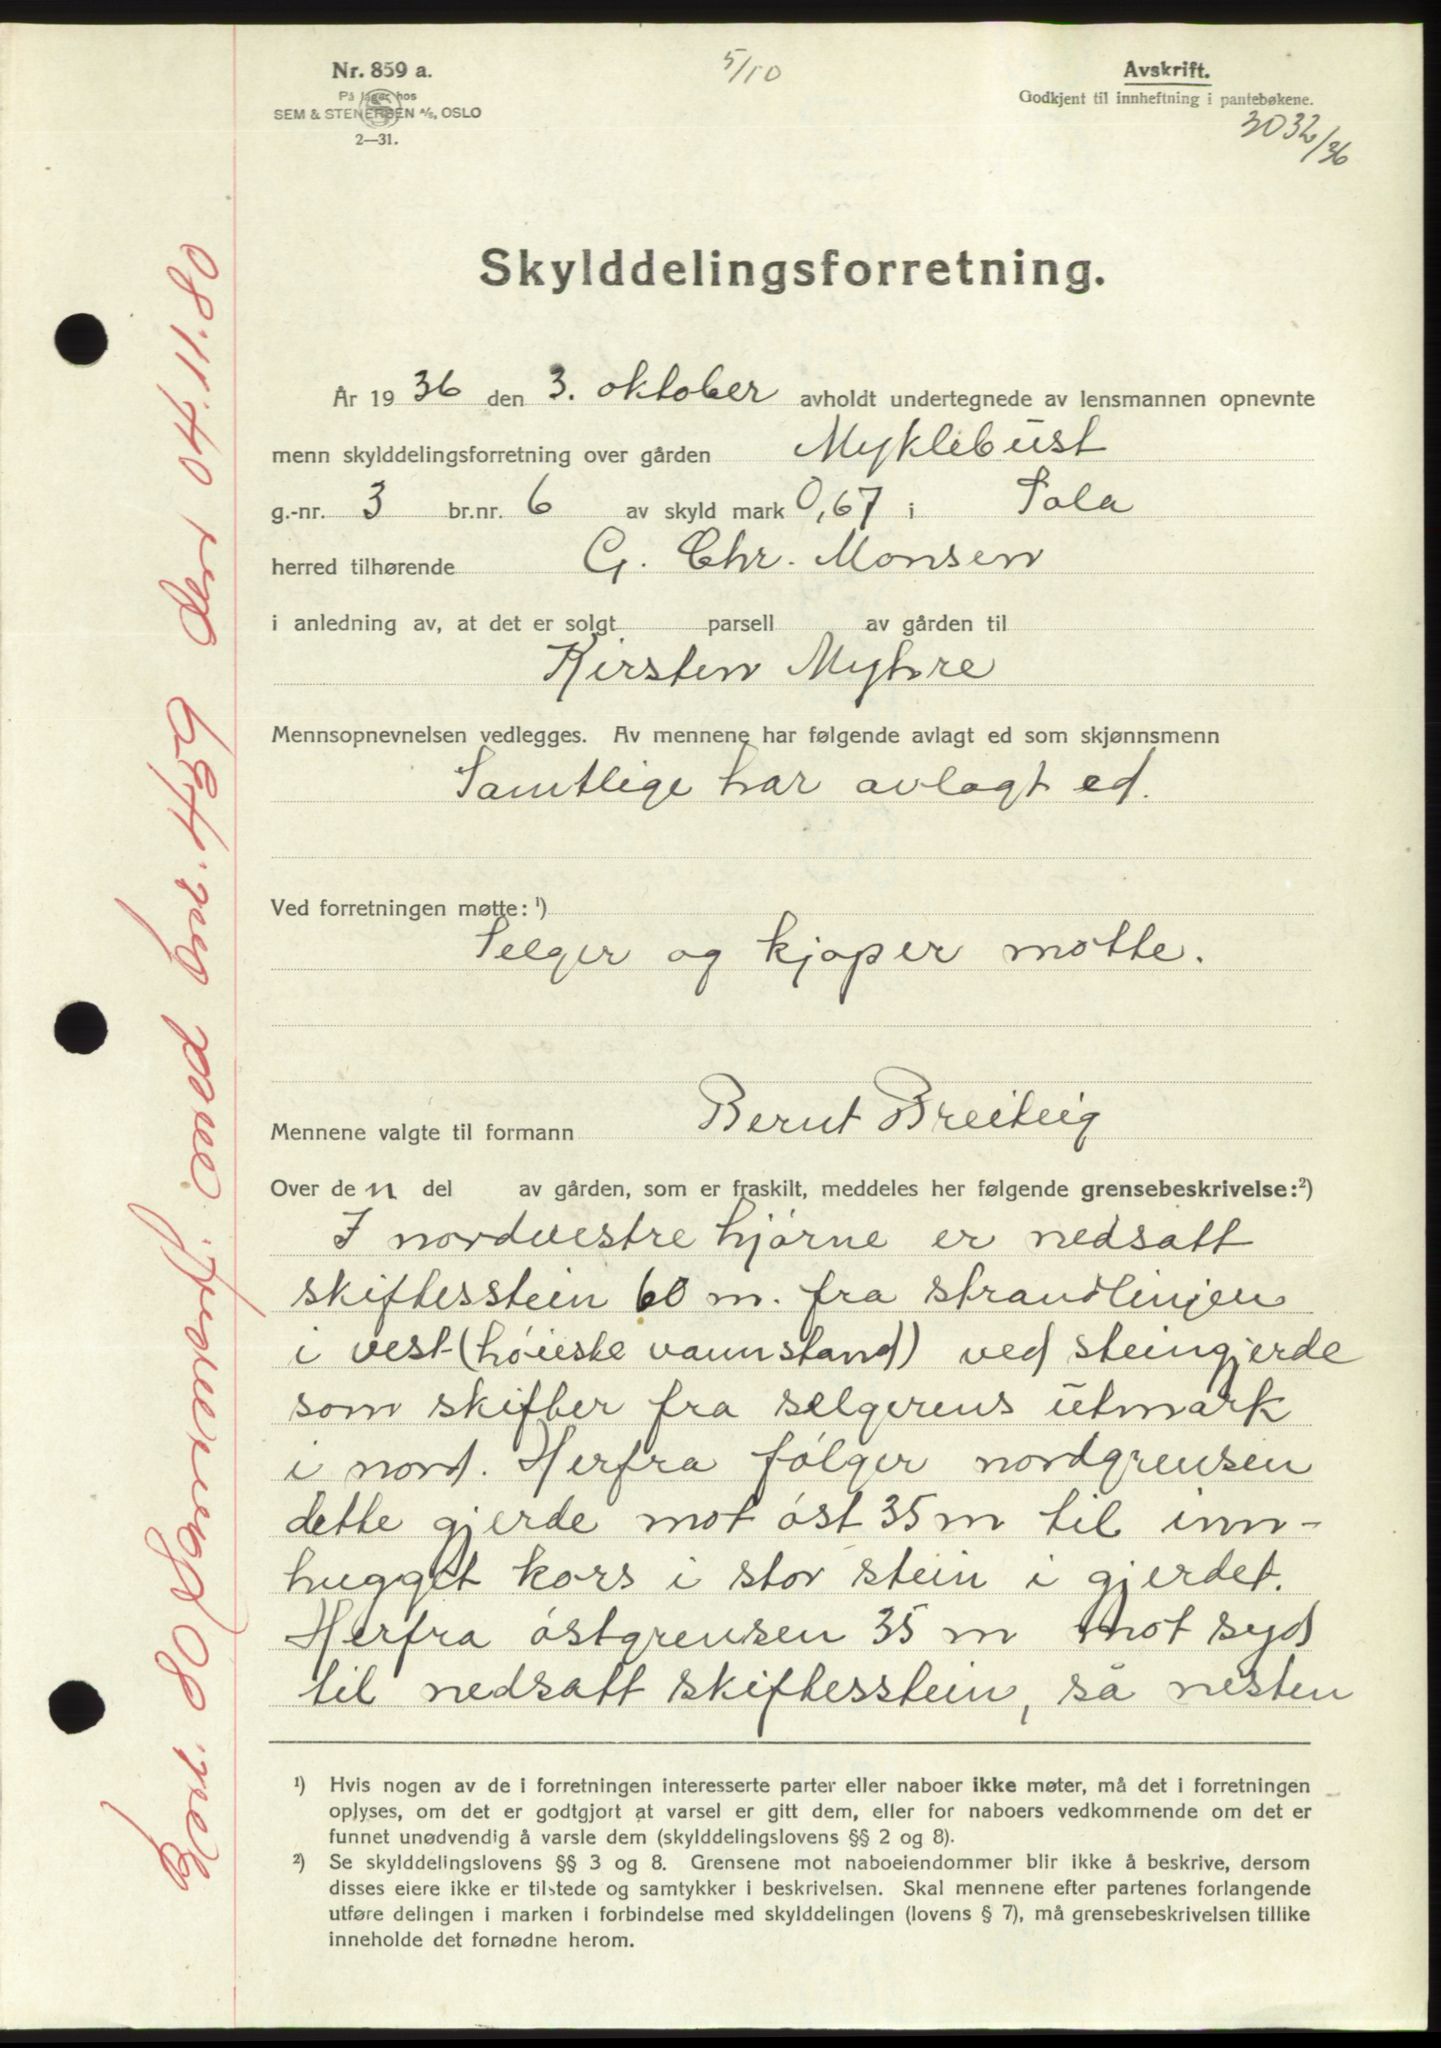 Nr. 859 a.
På lager hos
SEM & STENERSEN A/S, OSLO
2—31.
5/10
Avskrift.
Godkjent til innheftning i pantebøkene.
3032/36
Skylddelingsforretning.
År 1936 den 3. oktober avholdt undertegnede av lensmannen opnevnte
menn skylddelingsforretning over gården Myklebust
g.-nr. 3 br.nr. 6 av skyld mark 0,67 i Sola
herred tilhørende G. Chr. Monsen
i anledning av, at det er solgt parsell av gården til
Kirsten Myhre
Mennsopnevnelsen vedlegges. Av mennene har følgende avlagt ed som skjønnsmenn
Samtlige har avlagt ed.
Ved forretningen møtte: ¹)
Selger og kjøper møtte.
Mennene valgte til formann Bernt Breiteig
Over den del av gården, som er fraskilt, meddeles her følgende grensebeskrivelse:²)
I nordvestre hjørne er nedsatt
skiftesstein 60 m. fra strandlinjen
i vest (høieste vannstand) ved steingjerde
som skifter fra selgerens utmark
i nord. Herfra følger nordgrensen
dette gjerde mot øst 35 m til inn-
hugget kors i stor stein i gjerdet.
Herfra østgrensen 35 m mot syd
til nedsatt skiftesstein, så nesten
¹) Hvis nogen av de i forretningen interesserte parter eller naboer ikke møter, må det i forretningen
oplyses, om det er godtgjort at varsel er gitt dem, eller for naboers vedkommende om det er
funnet unødvendig å varsle dem (skylddelingslovens §§ 2 og 8).
²) Se skylddelingslovens §§ 3 og 8. Grensene mot naboeiendommer blir ikke å beskrive, dersom
disses eiere ikke er tilstede og samtykker i beskrivelsen. Skal mennene efter partenes forlangende
utføre delingen i marken i forbindelse med skylddelingen (lovens § 7), må grensebeskrivelsen tillike
inneholde det fornødne herom.
Bnr. 80 sammenføy. med bnr. 459 den 04.11.80